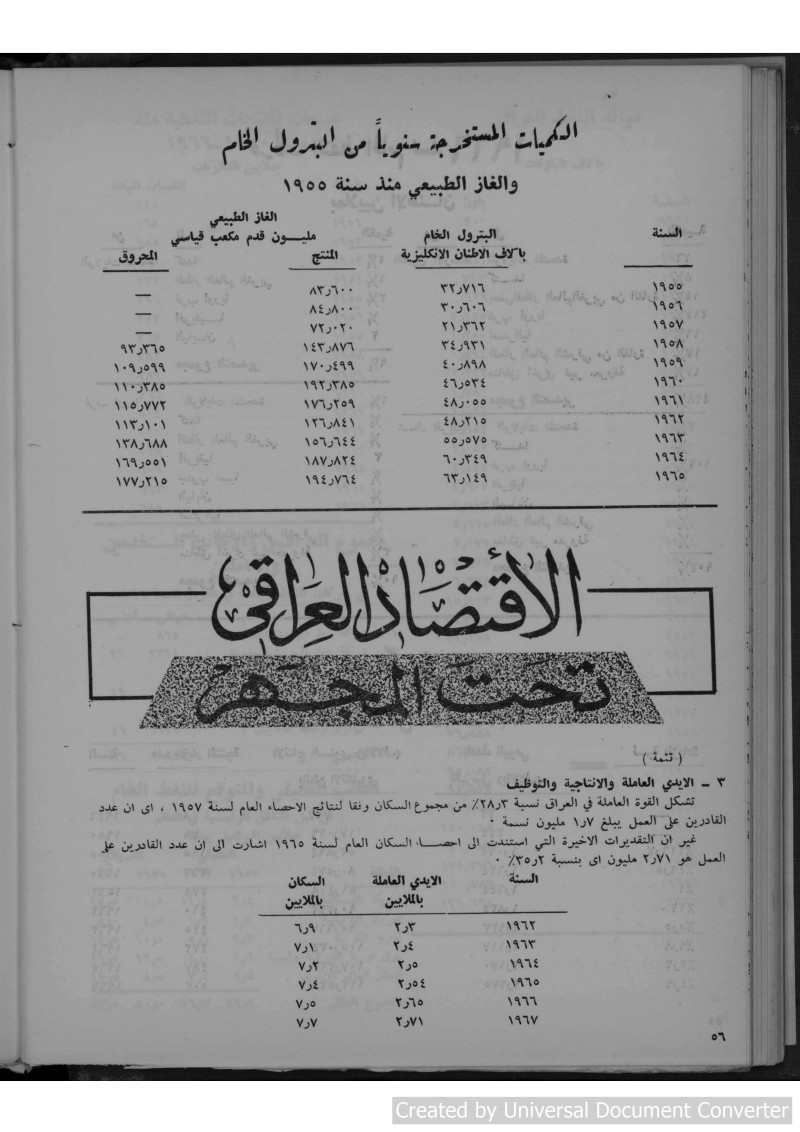 الكميات المستخرجة سنوياً من البترول الخام
والغاز الطبيعي منذ سنة ١٩٥٥
السنة البترول الخام بآلاف الاطنان الانكليزية الغاز الطبيعي مليـــون قدم مكعب قياسي المنتج المحروق
١٩٥٥ ٣٢٫٧١٦ ٨٣٫٦٠٠ —
١٩٥٦ ٣٠٫٦٠٦ ٨٤٫٨٠٠ —
١٩٥٧ ٢١٫٣٦٢ ٧٢٫٠٢٠ —
١٩٥٨ ٣٤٫٩٣١ ١٤٣٫٨٧٦ ٩٣٫٣٦٥
١٩٥٩ ٤٠٫٨٩٨ ١٧٠٫٤٩٩ ١٠٩٫٥٩٩
١٩٦٠ ٤٦٫٥٣٤ ١٩٢٫٣٨٥ ١١٠٫٣٨٥
١٩٦١ ٤٨٫٠٥٥ ١٧٦٫٢٥٩ ١١٥٫٧٧٢
١٩٦٢ ٤٨٫٢١٥ ١٢٦٫٨٤١ ١١٣٫١٠١
١٩٦٣ ٥٥٫٥٧٥ ١٥٦٫٦٤٤ ١٣٨٫٦٨٨
١٩٦٤ ٦٠٫٣٤٩ ١٨٧٫٨٢٤ ١٦٩٫٥٥١
١٩٦٥ ٦٣٫١٤٩ ١٩٤٫٧٦٤ ١٧٧٫٢١٥
الاقتصاد العراقي
تحت المجهر
( تتمة )
٣ ــ الايدي العاملة والانتاجية والتوظيف
تشكل القوة العاملة في العراق نسبة ٢٨٫٣٪ من مجموع السكان وفقا لنتائج الاحصاء العام لسنة ١٩٥٧ ، اى ان عدد
القادرين على العمل يبلغ ١٫٧ مليون نسمة ٠
غير ان التقديرات الاخيرة التي استندت الى احصـــاء السكان العام لسنة ١٩٦٥ اشارت الى ان عدد القادرين على
العمل هو ٢٫٧١ مليون اى بنسبة ٣٥٫٢٪ ٠
السنة الايدي العاملة بالملايين السكان بالملايين
١٩٦٢ ٢٫٣ ٦٫٩
١٩٦٣ ٢٫٤ ٧٫١
١٩٦٤ ٢٫٥ ٧٫٢
١٩٦٥ ٢٫٥٤ ٧٫٤
١٩٦٦ ٢٫٦٥ ٧٫٥
١٩٦٧ ٢٫٧١ ٧٫٧
٥٦
Created by Universal Document Converter